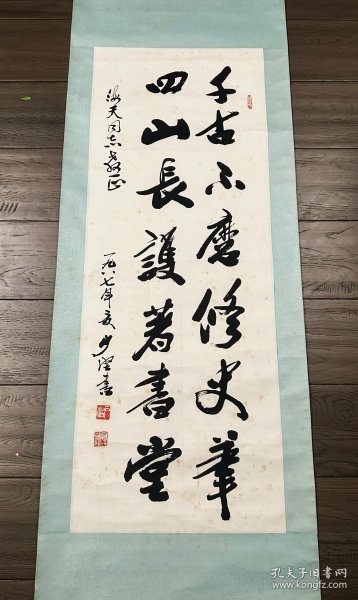 千古不磨修史筆
四山長護著書堂
海天同志教正
一九八七年夏少墀書
孔夫子旧书网
www.kongfz.com